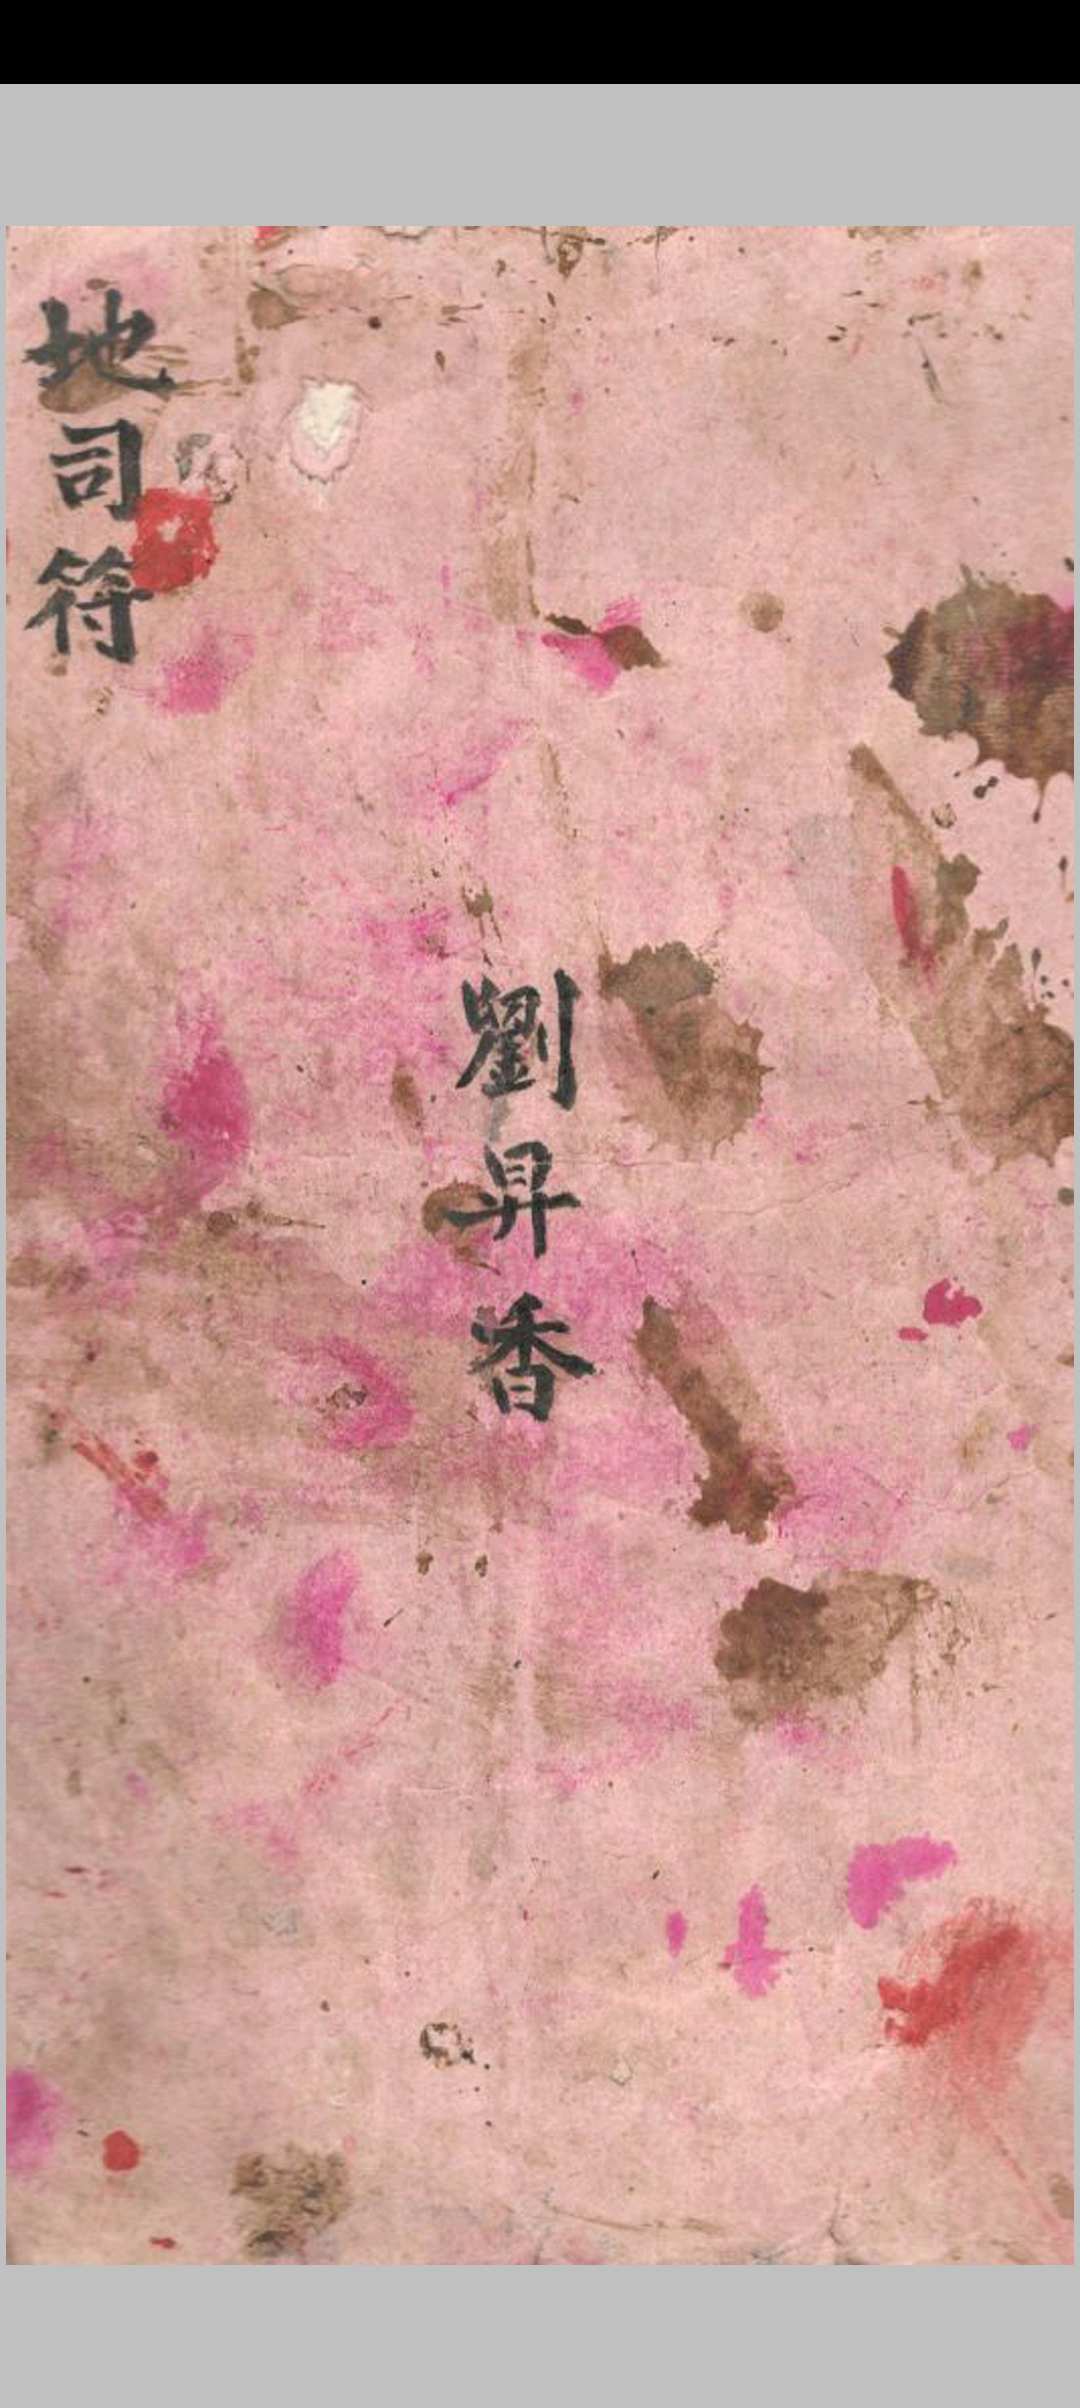 地司符
劉昇香